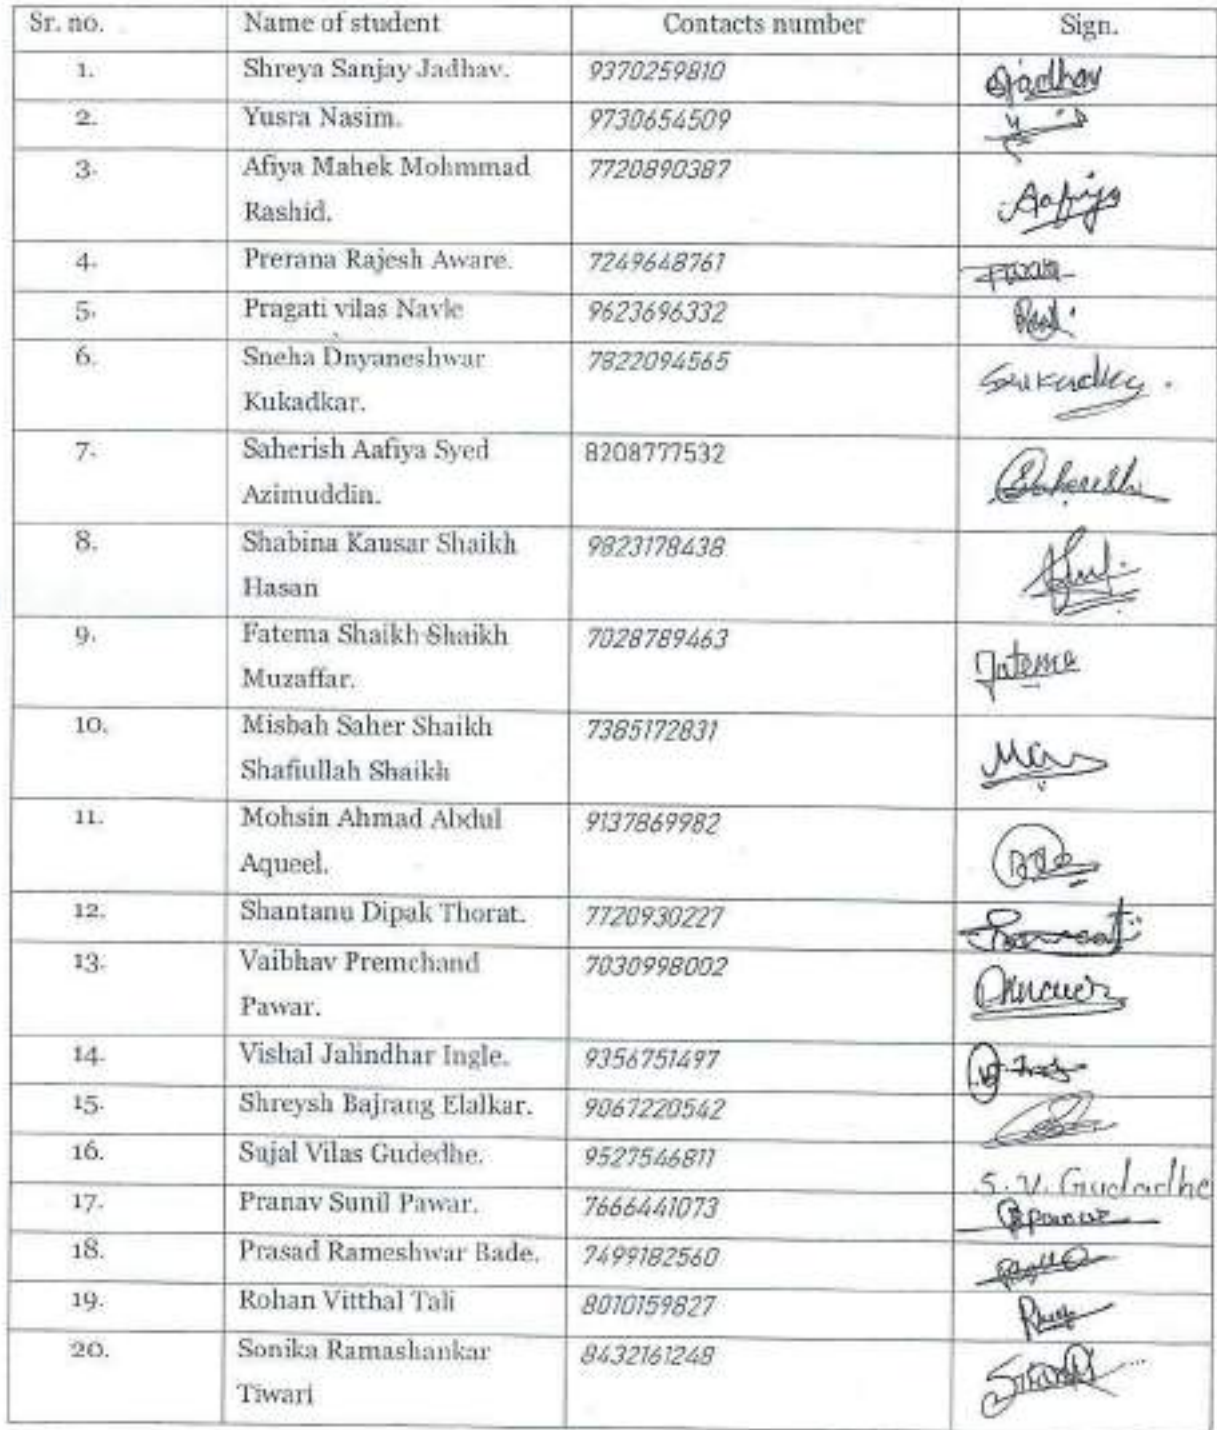 Sr. no. Name of student Contacts number Sign.
1. Shreya Sanjay Jadhav. 9370259810 Sjadhav
2. Yusra Nasim. 9730654509
3. Afiya Mahek Mohmmad 7720890387 Aafiya
Rashid.
4. Prerana Rajesh Aware. 7249648761
5. Pragati vilas Navle 9623696332
6. Sneha Dnyaneshwar 7822094565
Kukadkar.
7. Saherish Aafiya Syed 8208777532
Azimuddin.
8. Shabina Kausar Shaikh 9823178438
Hasan
9. Fatema Shaikh Shaikh 7028789463 Fatema
Muzaffar.
10. Misbah Saher Shaikh 7385172831
Shafiullah Shaikh
11. Mohsin Ahmad Abdul 9137869982
Aqueel.
12. Shantanu Dipak Thorat. 7720930227
13. Vaibhav Premchand 7030998002
Pawar.
14. Vishal Jalindhar Ingle. 9356751497
15. Shreysh Bajrang Elalkar. 9067220542
16. Sujal Vilas Gudedhe. 9527546811 S. V. Gudadhe
17. Pranav Sunil Pawar. 7666441073
18. Prasad Rameshwar Bade. 7499182560
19. Rohan Vitthal Tali 8010159827
20. Sonika Ramashankar 8432161248
Tiwari